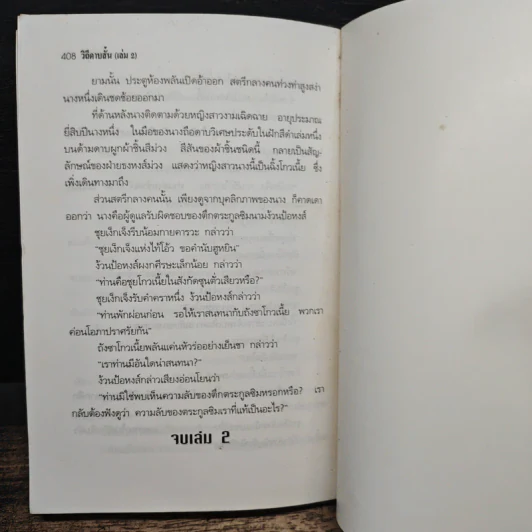 408 วิถีดาบสั้น (เล่ม 2)
ยามนั้น ประตูห้องพลันเปิดอ้าออก สตรีกลางคนท่วงท่าสูงสง่า
นางหนึ่งเดินชดช้อยออกมา
ที่ด้านหลังนางติดตามด้วยหญิงสาวงามเฉิดฉาย อายุประมาณ
ยี่สิบปีนางหนึ่ง ในมือของนางถือดาบวิเศษประดับในฝักสีดำเล่มหนึ่ง
บนด้ามดาบผูกผ้าชิ้นสีม่วง สีสันของผ้าชิ้นชนิดนี้ กลายเป็นสัญ-
ลักษณ์ของฝ่ายจงหงส์ม่วง แสดงว่าหญิงสาวนางนี้เป็นฉิ้งโกวเนี้ย ซึ่ง
เพิ่งเดินทางมาถึง
ส่วนสตรีกลางคนนั้น เพียงดูจากบุคลิกภาพของนาง ก็คาดเดา
ออกว่า นางคือผู้ดูแลรับผิดชอบของตึกตระกูลซิมนามง้วนป้อหงส์
ชุยเง็กเจ็งรีบน้อมกายคารวะ กล่าวว่า
"ชุยเง็กเจ็งแห่งไท้โอ้ว ขอคำนับฮูหยิน"
ง้วนป้อหงส์ผงกศีรษะเล็กน้อย กล่าวว่า
"ท่านคือชุยโกวเนี้ยในสังกัดซุนตั่วเสียวหรือ?"
ชุยเง็กเจ็งรับคำคราหนึ่ง ง้วนป้อหงส์กล่าวว่า
"ท่านพักผ่อนก่อน รอให้เราสนทนากับถังซาโกวเนี้ย พวกเรา
ค่อนโอภาปราศรัยกัน"
ถังซาโกวเนี้ยพลันแค่นหัวร่ออย่างเย็นชา กล่าวว่า
"เราท่านมีอันใดน่าสนทนา?"
ง้วนป้อหงส์กล่าวเสียงอ่อนโยนว่า
"ท่านมิใช่พบเห็นความลับของตึกตระกูลซิมหรอกหรือ? เรา
กลับต้องฟังดูว่า ความลับของตระกูลซิมเราที่แท้เป็นอะไร?"
จบเล่ม 2